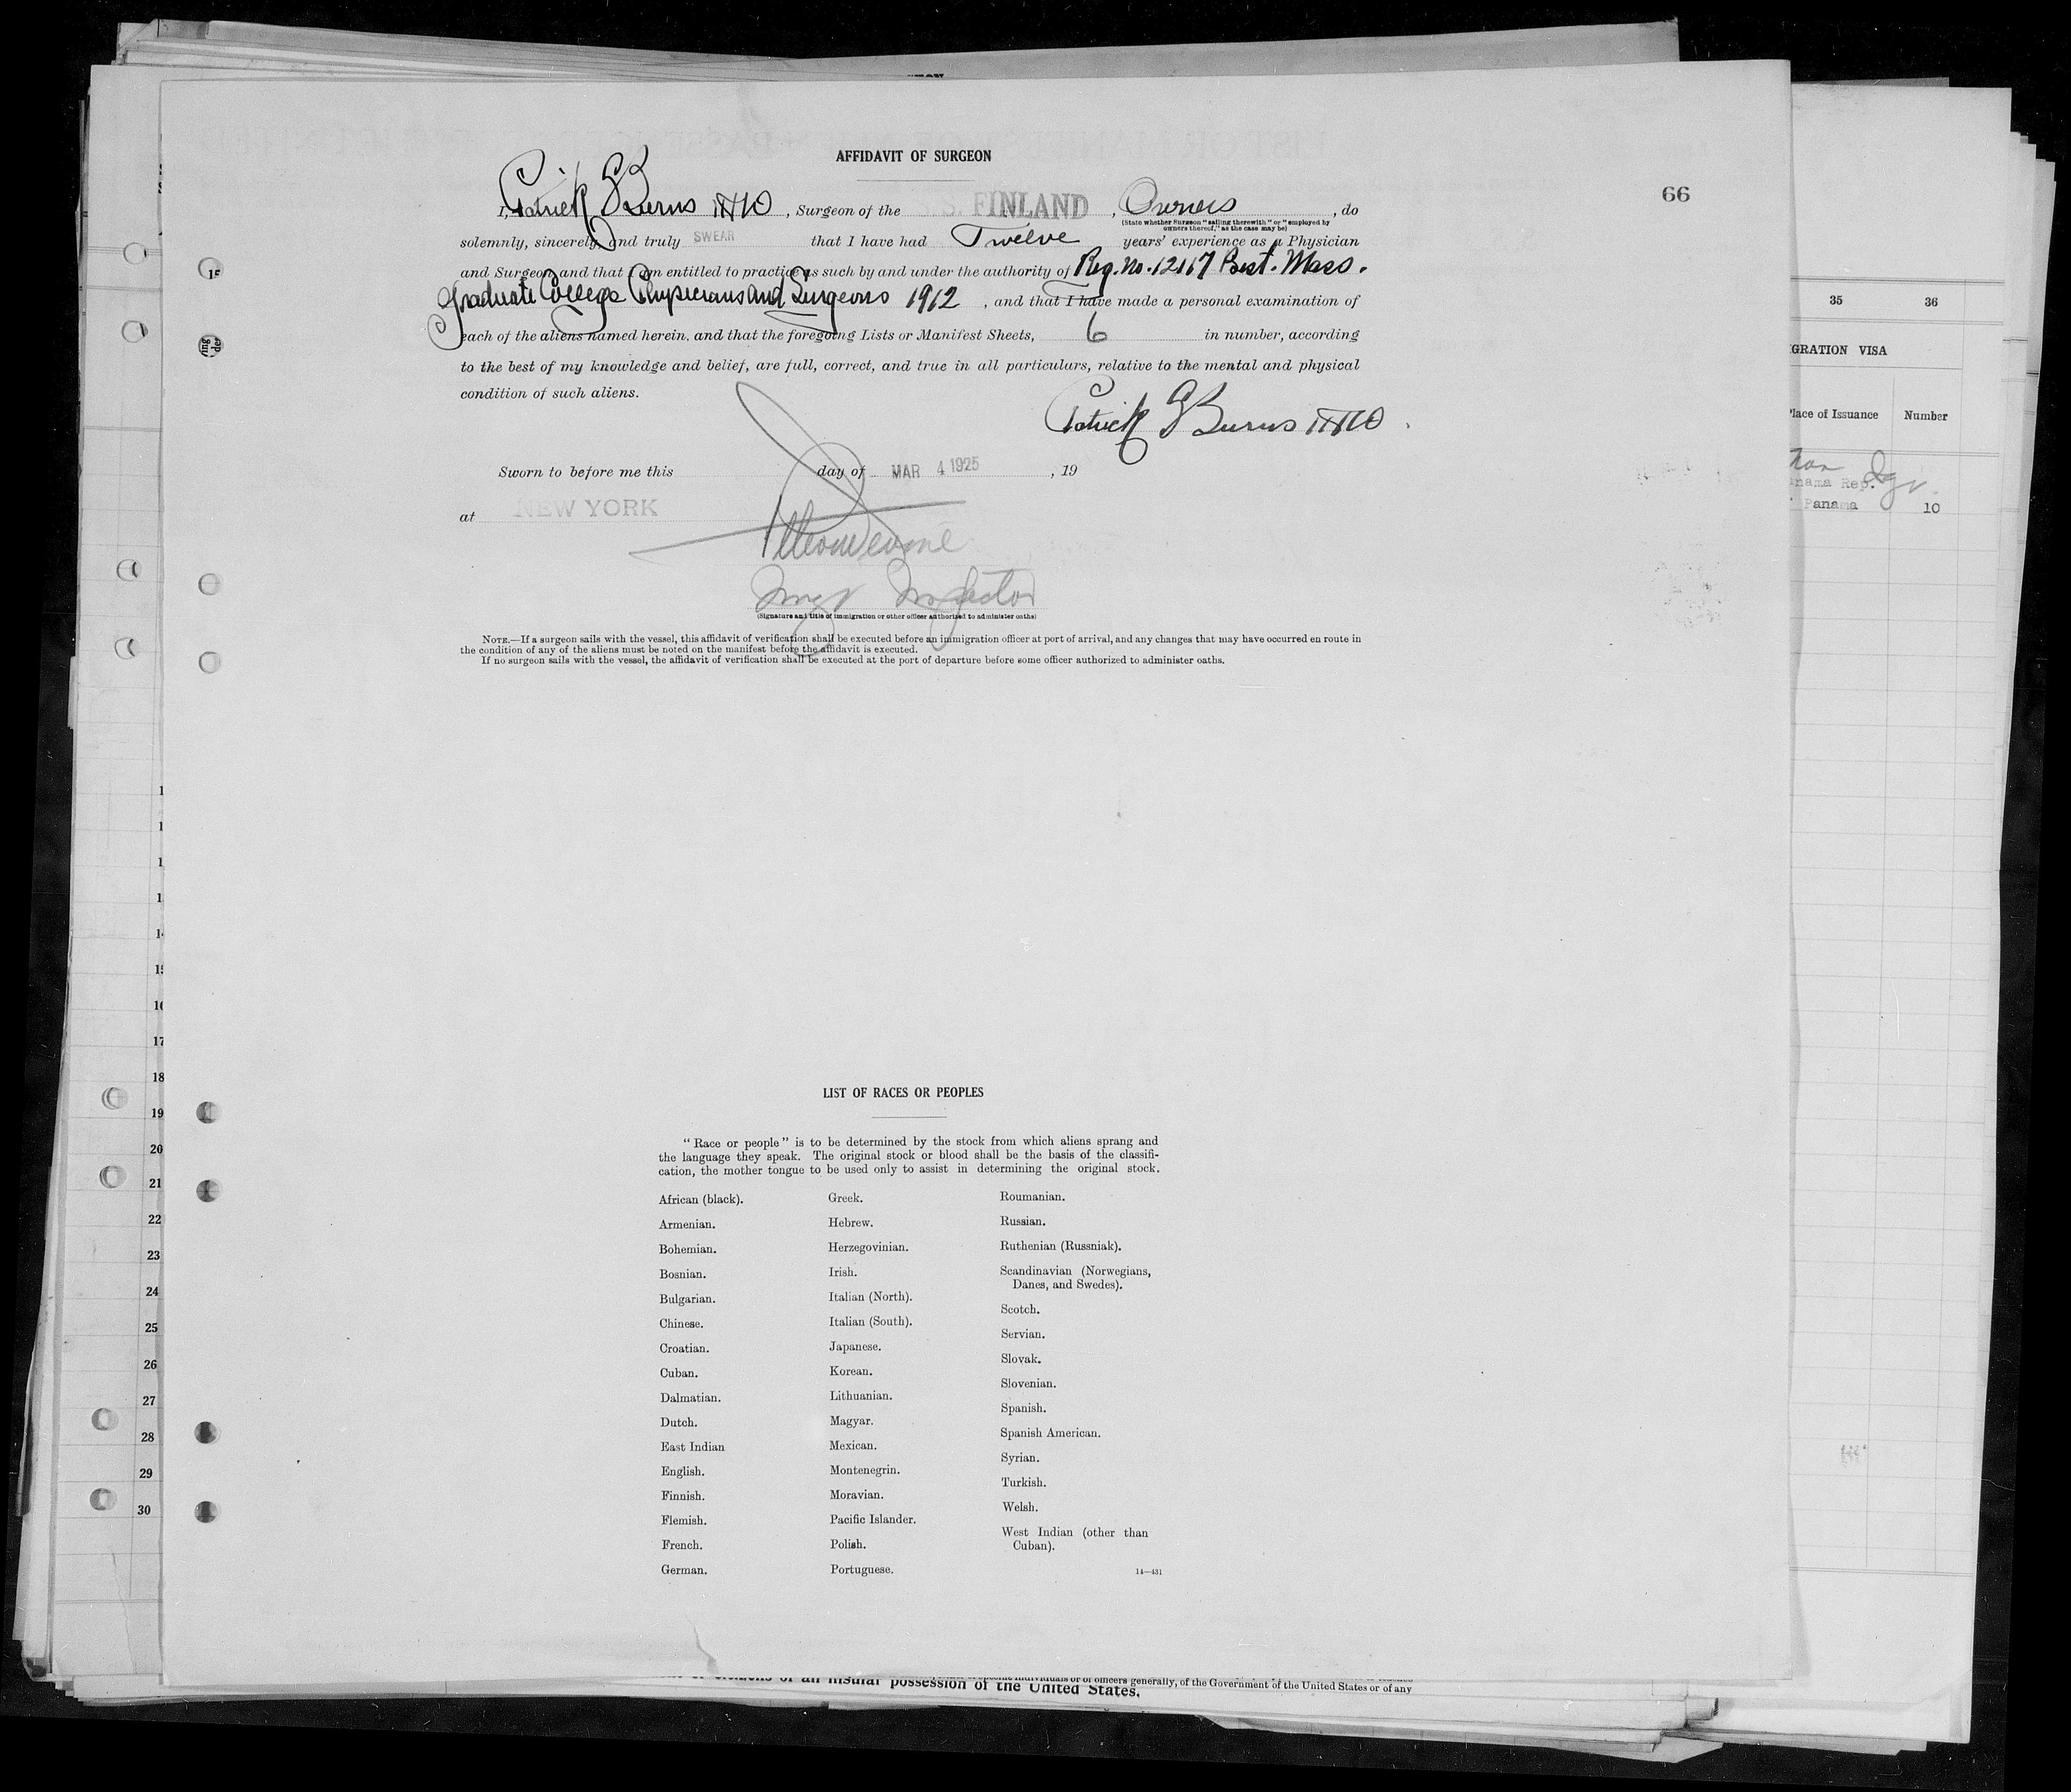 AFFIDAVIT OF SURGEON
66
I, Patrick G Burns M D, Surgeon of the S.S. FINLAND, Owners, do
(State whether Surgeon "sailing therewith" or "employed by
owners thereof," as the case may be)
solemnly, sincerely, and truly SWEAR that I have had Twelve years' experience as a Physician
and Surgeon and that I am entitled to practice as such by and under the authority of Reg. No. 12117 Bost. Mass.
Graduate College Physicians and Surgeons 1912, and that I have made a personal examination of
each of the aliens named herein, and that the foregoing Lists or Manifest Sheets, 6 in number, according
to the best of my knowledge and belief, are full, correct, and true in all particulars, relative to the mental and physical
condition of such aliens.
Patrick G Burns M D.
Sworn to before me this day of MAR 4 1925, 19
at NEW YORK
Inspector
(Signature and title of immigration or other officer authorized to administer oaths)
NOTE.—If a surgeon sails with the vessel, this affidavit of verification shall be executed before an immigration officer at port of arrival, and any changes that may have occurred en route in
the condition of any of the aliens must be noted on the manifest before the affidavit is executed.
If no surgeon sails with the vessel, the affidavit of verification shall be executed at the port of departure before some officer authorized to administer oaths.
LIST OF RACES OR PEOPLES
"Race or people" is to be determined by the stock from which aliens sprang and
the language they speak. The original stock or blood shall be the basis of the classifi-
cation, the mother tongue to be used only to assist in determining the original stock.
African (black).
Armenian.
Bohemian.
Bosnian.
Bulgarian.
Chinese.
Croatian.
Cuban.
Dalmatian.
Dutch.
East Indian
English.
Finnish.
Flemish.
French.
German.
Greek.
Hebrew.
Herzegovinian.
Irish.
Italian (North).
Italian (South).
Japanese.
Korean.
Lithuanian.
Magyar.
Mexican.
Montenegrin.
Moravian.
Pacific Islander.
Polish.
Portuguese.
Roumanian.
Russian.
Ruthenian (Russniak).
Scandinavian (Norwegians,
Danes, and Swedes).
Scotch.
Servian.
Slovak.
Slovenian.
Spanish.
Spanish American.
Syrian.
Turkish.
Welsh.
West Indian (other than
Cuban).
14—431
35 36
GRATION VISA
Place of Issuance Number
anama Rep.
Panama 10
17
18
19
20
21
22
23
24
25
26
27
28
29
30
of an insular possession of the United States.
generally, of the Government of the United States or of any